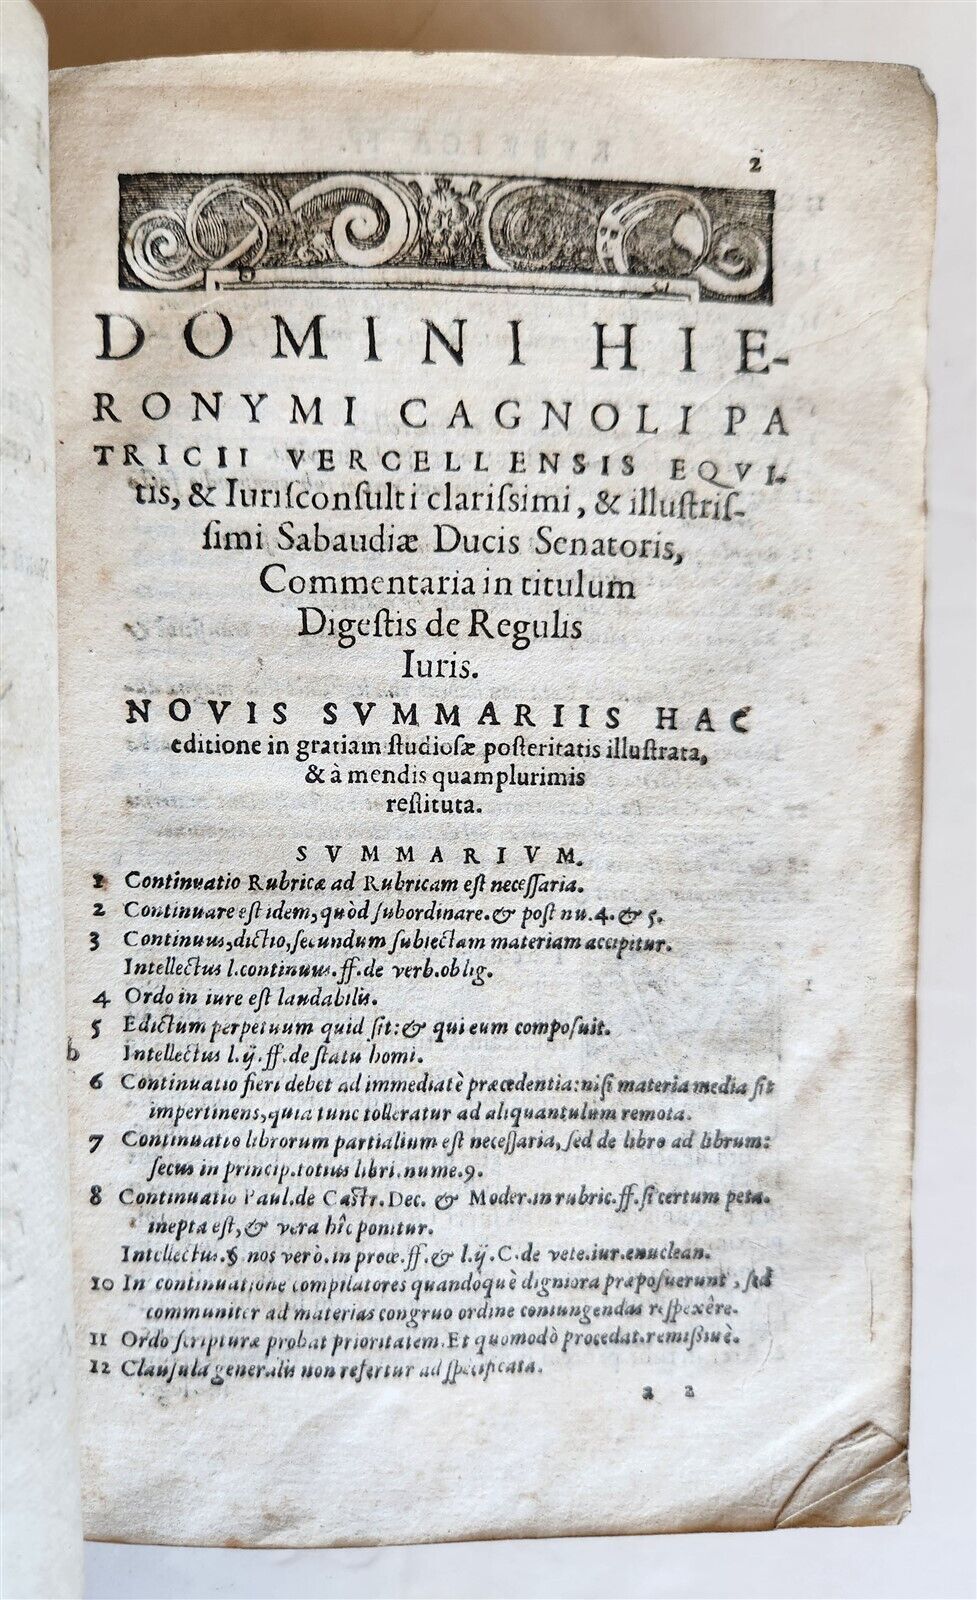 2
DOMINI HIE-
RONYMI CAGNOLI PA
TRICII VERCELLENSIS EQVI-
tis, & Iuriſconſulti clariſsimi, & illuſtriſ-
ſimi Sabaudiæ Ducis Senatoris,
Commentaria in titulum
Digeſtis de Regulis
Iuris.
NOVIS SVMMARIIS HAC
editione in gratiam ſtudioſæ poſteritatis illuſtrata,
& à mendis quamplurimis
reſtituta.
SVMMARIVM.
1 Continuatio Rubricæ ad Rubricam eſt neceſſaria.
2 Continuare eſt idem, quòd ſubordinare. & poſt nu. 4. & 5.
3 Continuus, dictio, ſecundum ſubiectam materiam accipitur.
Intellectus l. continuus. ff. de verb. oblig.
4 Ordo in iure eſt laudabilis.
5 Edictum perpetuum quid ſit: & qui eum compoſuit.
Intellectus l. ij. ff. de ſtatu homi.
6 Continuatio fieri debet ad immediatè præcedentia: niſi materia media ſit
impertinens, quia tunc tolleratur ad aliquantulum remota.
7 Continuatio librorum partialium eſt neceſſaria, ſed de libro ad librum:
ſecus in princip. totius libri. nume. 9.
8 Continuatio Paul. de Caſtr. Dec. & Moder. in rubric. ff. ſi certum peta.
inepta eſt, & vera hîc ponitur.
Intellectus. § nos verò. in proœ. ff. & l. ij. C. de vete. iur. enuclean.
10 In continuatione compilatores quandòquè digniora præpoſuerunt, ſed
communiter ad materias congruo ordine coniungendas reſpexêre.
11 Ordo ſcripturæ probat prioritatem. Et quomodò procedat. remiſſiuè.
12 Clauſula generalis non refertur ad ſpecificata.
a 2